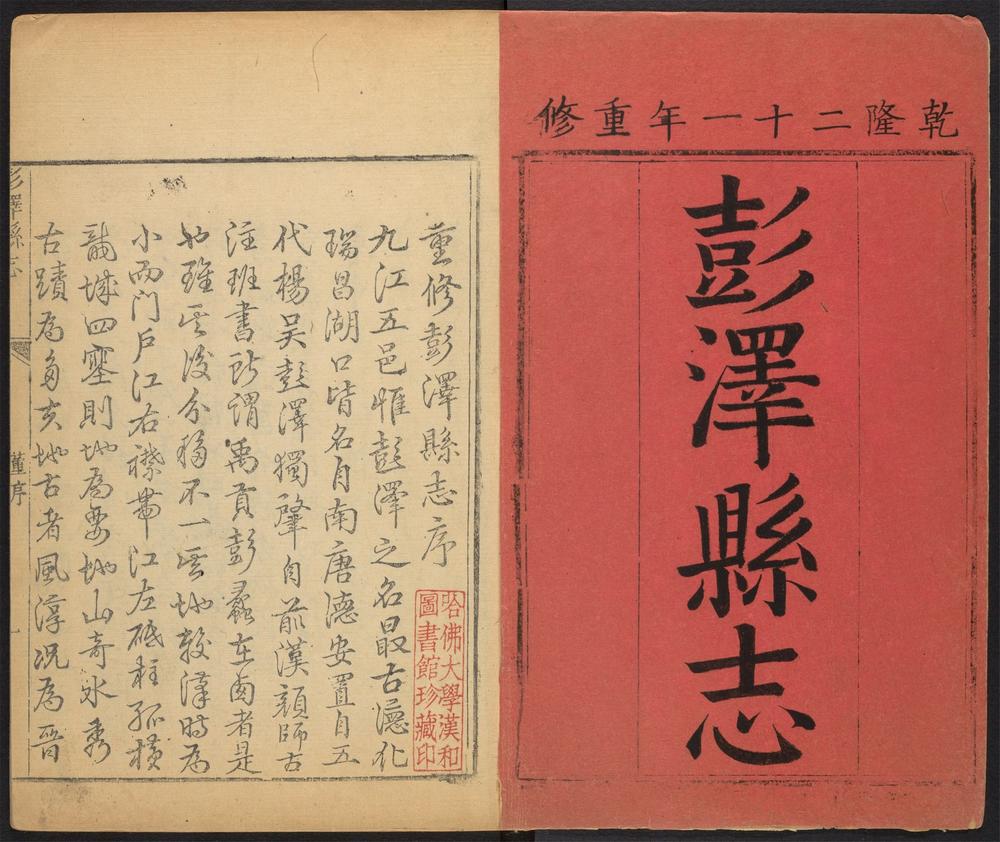 乾隆二十一年重修
彭澤縣志
重修彭澤縣志序
九江五邑惟彭澤之名最古德化
瑞昌湖口皆名自南唐德安置自五
代楊吳彭澤獨肇自前漢顏師古
注班書所謂禹貢彭蠡在西者是
也雖其後分移不一其地較漢時為
小而門戶江右襟帶江左砥柱孤橫
龍城四塞則地為要地山奇水秀
古蹟為多矣地古者風淳況為晉
彭澤縣志
董序
一
哈佛大學漢和
圖書館珍藏印